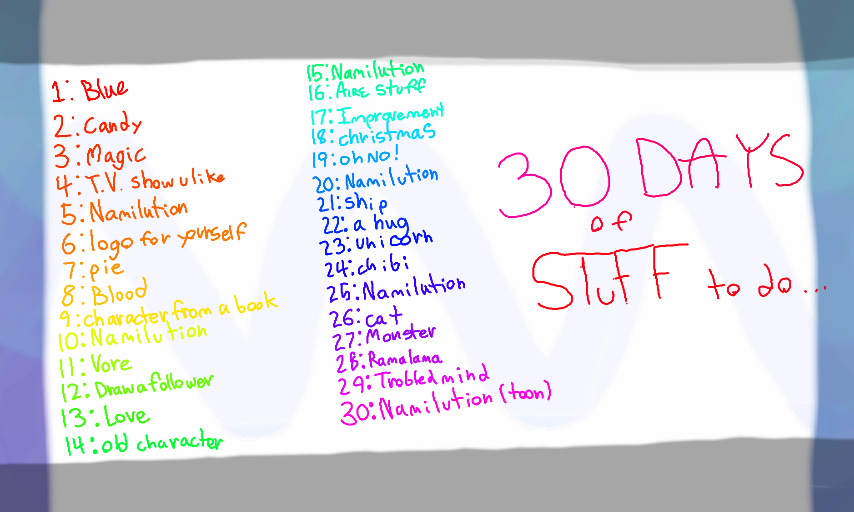 1: Blue
2: Candy
3: Magic
4: T.V. show u like
5: Namilution
6: logo for yourself
7: pie
8: Blood
9: character from a book
10: Namilution
11: Vore
12: Draw a follower
13: Love
14: old character
15: Namilution
16: Aire stuff
17: Improvement
18: christmas
19: oh No!
20: Namilution
21: ship
22: a hug
23: unicorn
24: chibi
25: Namilution
26: cat
27: Monster
28: Ramalama
29: Trobled mind
30: Namilution (toon)
30 DAYS
of
STUFF to do...